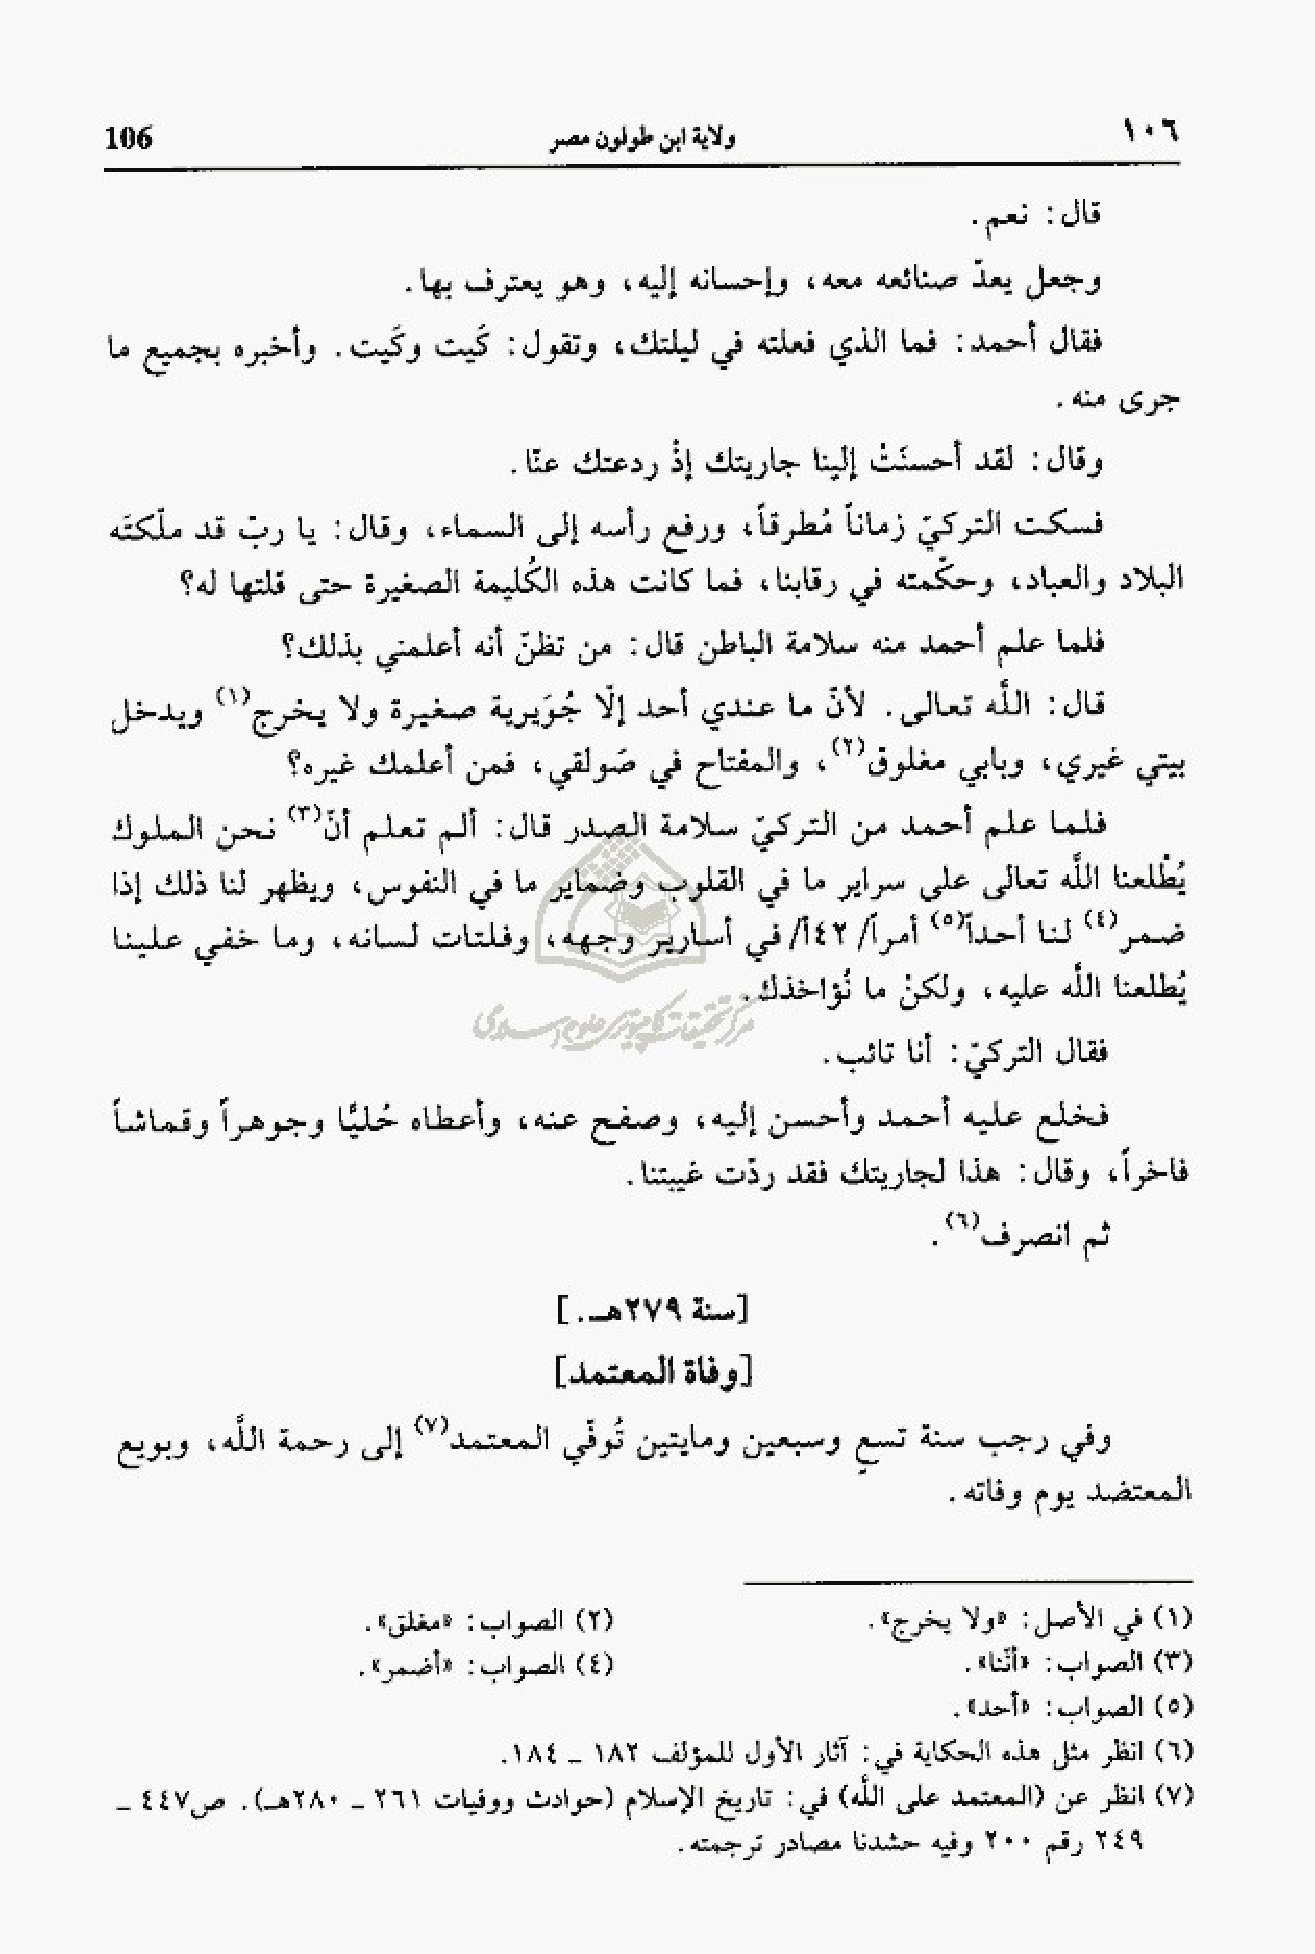 ١٠٦ ولاية ابن طولون مصر 106
قال: نعم.
وجعل يعدّ صنائعه معه، وإحسانه إليه، وهو يعترف بها.
فقال أحمد: فما الذي فعلته في ليلتك، وتقول: كَيت وكَيت. وأخبره بجميع ما
جرى منه.
وقال: لقد أحسنَتْ إلينا جاريتك إذْ ردعتك عنّا.
فسكت التركيّ زماناً مُطرقاً، ورفع رأسه إلى السماء، وقال: يا ربّ قد ملّكتَه
البلاد والعباد، وحكّمته في رقابنا، فما كانت هذه الكُليمة الصغيرة حتى قلتها له؟
فلما علم أحمد منه سلامة الباطن قال: من تظنّ أنه أعلمني بذلك؟
قال: اللَّه تعالى. لأنّ ما عندي أحد إلّا جُوَيرية صغيرة ولا يخرج(١) ويدخل
بيتي غيري، وبابي مغلوق(٢)، والمفتاح في صَولقي، فمن أعلمك غيره؟
فلما علم أحمد من التركيّ سلامة الصدر قال: ألم تعلم أنّ(٣) نحن الملوك
يُطْلعنا اللَّه تعالى على سراير ما في القلوب وضماير ما في النفوس، ويظهر لنا ذلك إذا
ضمر(٤) لنا أحداً(٥) أمراً/ ٤٢أ/ في أسارير وجهه، وفلتات لسانه، وما خفي علينا
يُطلعنا اللَّه عليه، ولكنْ ما نُؤاخذك.
مركز تحقيقات كامپيوتری علوم اسلامی
فقال التركيّ: أنا تائب.
فخلع عليه أحمد وأحسن إليه، وصفح عنه، وأعطاه حُليًّا وجوهراً وقماشاً
فاخراً، وقال: هذا لجاريتك فقد ردّت غيبتنا.
ثم انصرف(٦).
[سنة ٢٧٩هـ.]
[وفاة المعتمد]
وفي رجب سنة تسعٍ وسبعين ومايتين تُوفّي المعتمد(٧) إلى رحمة اللَّه، وبويع
المعتضد يوم وفاته.
(١) في الأصل: «ولا يخرج». (٢) الصواب: «مغلق».
(٣) الصواب: «أنّنا». (٤) الصواب: «أضمر».
(٥) الصواب: «أحد».
(٦) انظر مثل هذه الحكاية في: آثار الأول للمؤلف ١٨٢ ــ ١٨٤.
(٧) انظر عن (المعتمد على اللَّه) في: تاريخ الإسلام (حوادث ووفيات ٢٦١ ــ ٢٨٠هـ). ص٤٤٧ ــ
٢٤٩ رقم ٢٠٠ وفيه حشدنا مصادر ترجمته.